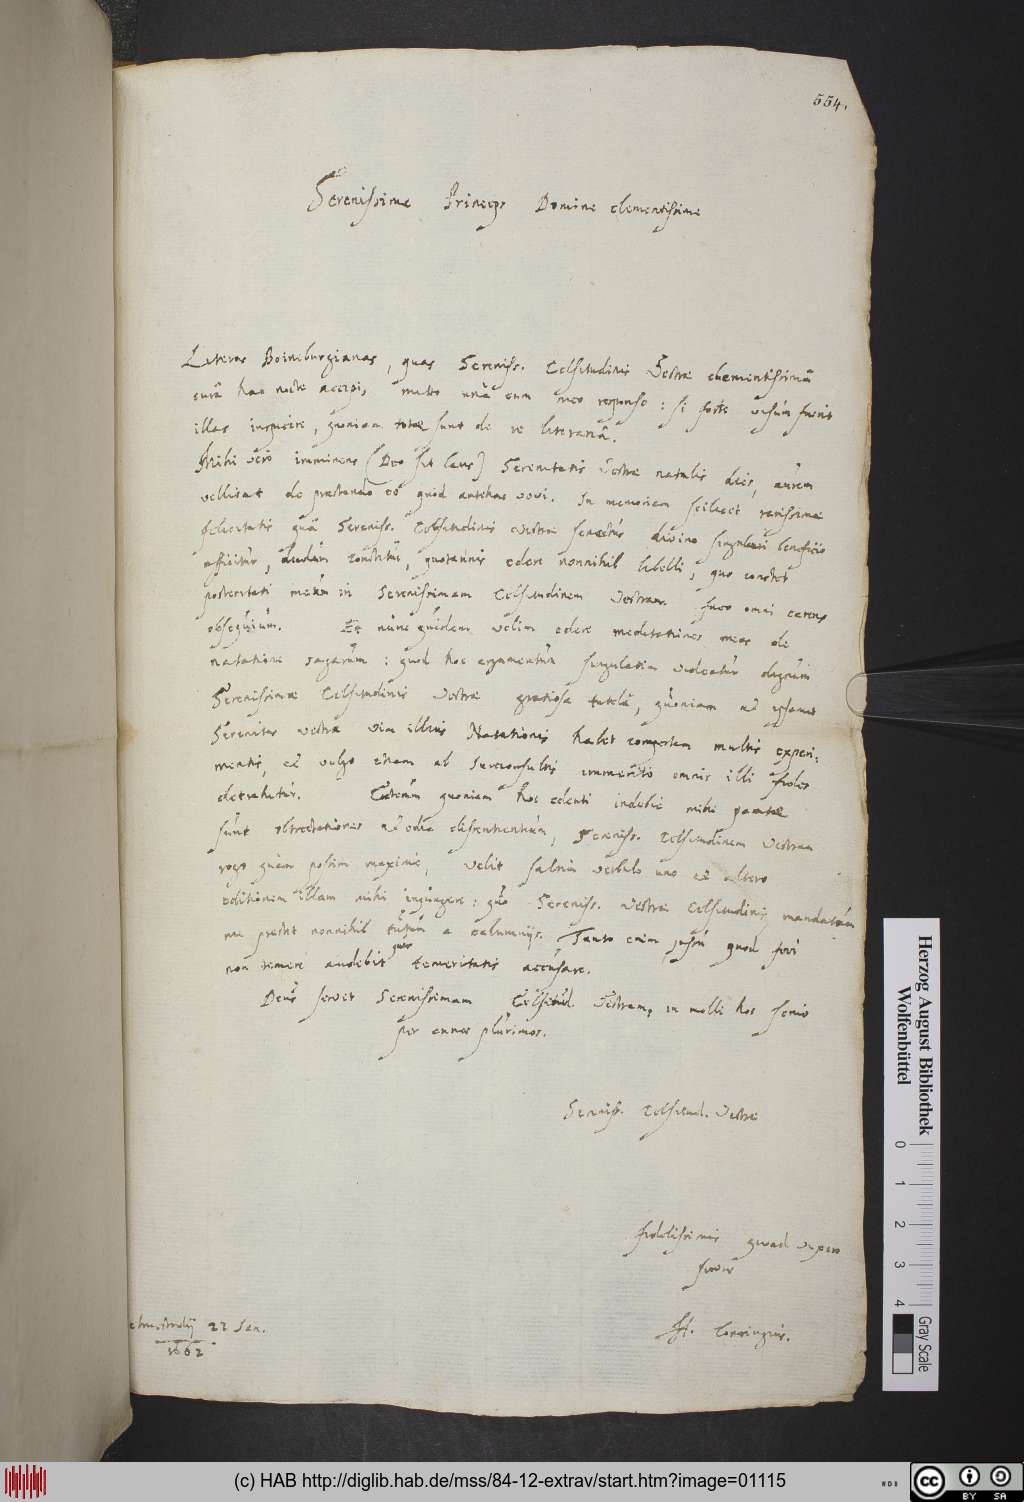 554.
Serenissime Princeps Domine clementissime
Literas Boineburgianas, quas Sereniss. Celsitudinis Vestrae clementissimâ
curâ hac nocte accepi, mitto unâ cum meo responso: si forte visum fuerit
illas inspicere, quoniam totae sunt de re literariâ.
Mihi verò imminens (Deo sit laus) Serenitatis Vestrae natalis dies, aurem
vellicat de praestando eo quod antehac vovi. In memoriam scilicet rarissimae
felicitatis quâ Sereniss. Celsitudinis Vestrae senectus divino singulari beneficio
afficitur, dudum constitui, quotannis edere nonnihil libelli, quo constet
posteritati meum in Serenissimam Celsitudinem Vestram fuco omni carens
obsequium. Et nunc quidem velim edere meditationes meas de
natatione sagarum: quod hoc argumentum singulatim videatur dignum
Serenissimae Celsitudinis Vestrae gratiosa tutelâ, quoniam et ipsamet
Serenitas Vestra vim illius Natationis habet compertam multis experi-
mentis, et vulgo etiam ab Iureconsultis immeritò omnis illi fides
detrahatur. Ceterum quoniam hoc edenti indubie mihi paratae
sunt obtrectationes et odia dissentientium, Sereniss. Celsitudinem Vestram
rogo quam possim maxime, velit saltim verbulo uno et altero
editionem illam mihi injungere: quo Sereniss. Vestrae Celsitudinis mandatum
me praestet nonnihil tutum a calumnijs. Tanto enim jussu quod feci
non temerè audebit quis temeritatis accusare.
Deus servet Serenissimam Celsitud. Vestram, in molli hoc senio
per annos plurimos.
Sereniss. Celsitud. Vestrae
fidelissimus quoad vixero
servus
H. Conringius.
22 Jan.
1662
Herzog August Bibliothek
Wolfenbüttel
0 1 2 3 4
Gray Scale
(c) HAB http://diglib.hab.de/mss/84-12-extrav/start.htm?image=01115
cc BY SA